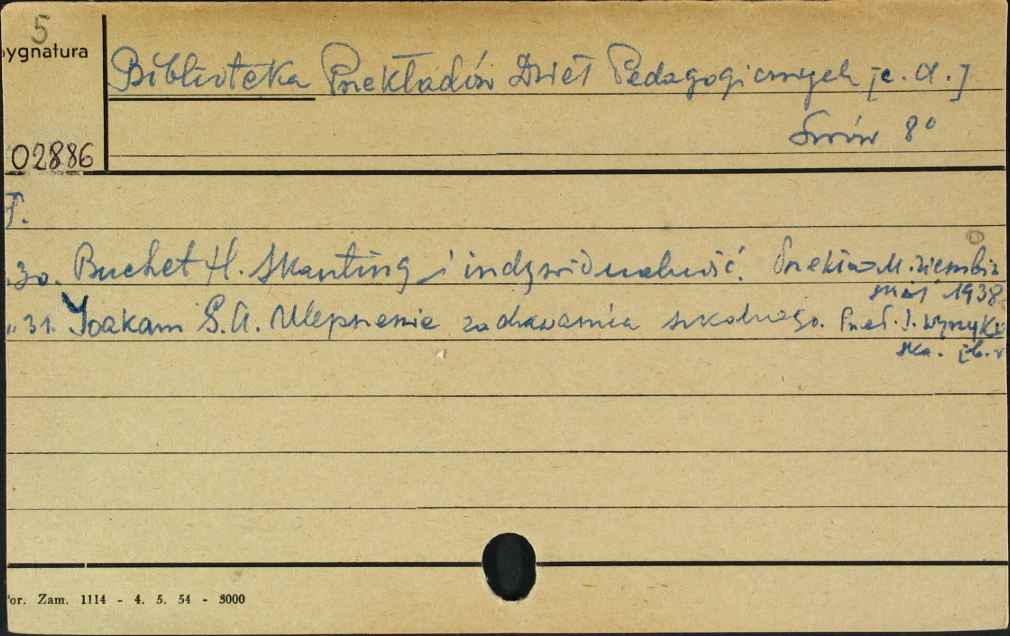 5
ygnatura
02886
Biblioteka Przekładów Dzieł Pedagogicznych [c. d.]
Lwów 8°
T.
30. Buchet H. Skauting i indywidualność. M.
1938
" 31. Yoakam G. A. Ulepszenie zadawania szkolnego. Przeł. J.
ska. [b. r
or. Zam. 1114 - 4. 5. 54 - 3000